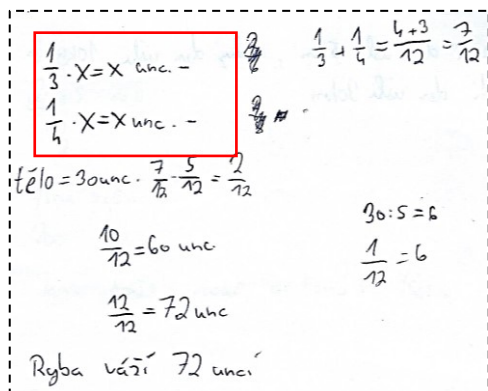 1/3 · x = x unc. -
1/4 · x = x unc. -
1/3 + 1/4 = 4+3/12 = 7/12
tělo = 30unc · 7/12 - 5/12 = 2/12
10/12 = 60 unc
12/12 = 72 unc
30:5=6
1/12 = 6
Ryba váží 72 uncí